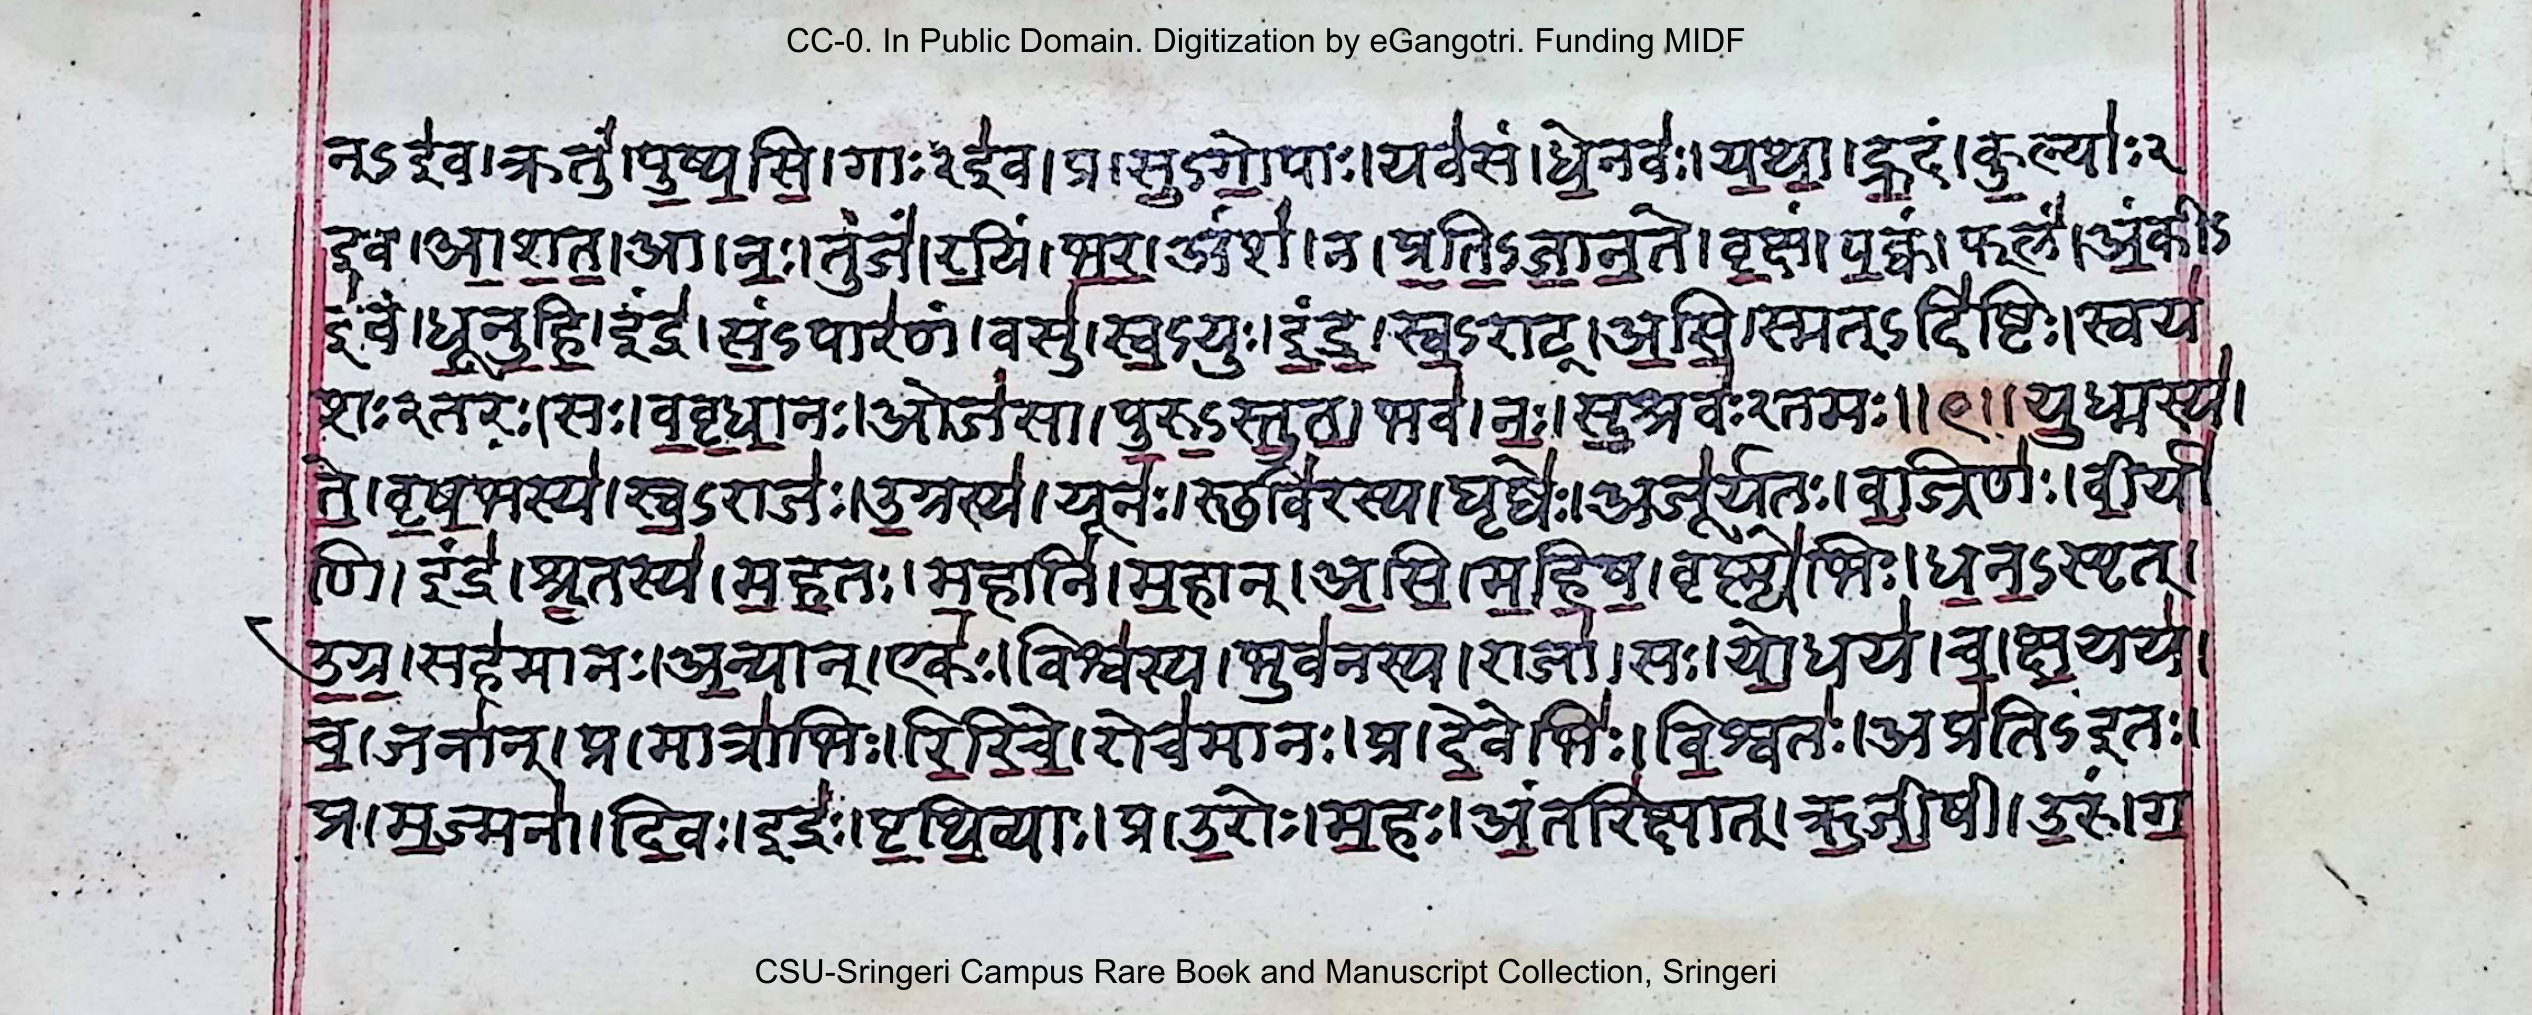 CC-0. In Public Domain. Digitization by eGangotri. Funding MIDF
न्ऽइ॑व।क्रतुं॑।पु॒ष्य॒सि॒।गाः२इ॑व।प्र।सु॒ऽगो॒पाः।यव॑सं।धे॒नवः॑।य॒था॒।ह्र॒दं।कु॒ल्याः॑२
इव।आ॒श॒त॒।आ।नः॒।तुजं॑।र॒यिं।भ॒र॒।अंशं॑।न।प्र॒ति॒ऽजा॒न॒ते।वृ॒क्षं।प॒क्वं।फलं॑।अं॒कीऽ
इ॑व।धू॒नु॒हि॒।इंद्र॑।सं॒ऽपार॑णं।वसु॑।स्व॒ऽयुः।इं॒द्र॒।स्व॒ऽराट्।अ॒सि॒।स्मत्ऽदि॑ष्टिः।स्वय॑
शः२तरः।सः।व॒वृ॒धा॒नः।ओज॑सा।पु॒रु॒ऽस्तु॒त॒।भव॑।नः॒।सु॒श्रवः॑२तमः॥९॥यु॒ध्मस्य॑।
ते॒।वृ॒ष॒भस्य॑।स्व॒ऽराजः॑।उ॒ग्रस्य॑।यूनः॑।स्थवि॑रस्य।घृष्वेः॑।अजू॑र्यतः।व॒ज्रिणः॑।वी॒र्या॑
णि।इंद्र॑।श्रु॒तस्य॑।म॒ह॒तः।म॒हानि॑।म॒हान्।अ॒सि॒।म॒हि॒ष॒।वृष्ण्ये॑भिः।ध॒न॒ऽस्पृत्।
उ॒ग्र॒।सह॑मानः।अ॒न्यान्।एकः॑।विश्व॑स्य।भुव॑नस्य।राजा॑।सः।यो॒धय॑।च॒।क्ष॒यय॑।
च॒।जना॑न्।प्र।मात्रा॑भिः।रि॒रि॒चे॒।रोच॑मानः।प्र।दे॒वेभिः॑।वि॒श्वतः॑।अप्र॑तिऽइतः।
प्र।म॒ज्मना॑।दि॒वः।इंद्रः॑।पृ॒थि॒व्याः।प्र।उ॒रोः।म॒हः।अं॒तरि॑क्षात्।ऋ॒जी॒षी।उ॒रुं।ग॒
CSU-Sringeri Campus Rare Book and Manuscript Collection, Sringeri